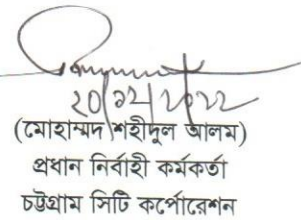 ২০/১২/২০২২
(মোহাম্মদ শহীদুল আলম)
প্রধান নির্বাহী কর্মকর্তা
চট্টগ্রাম সিটি কর্পোরেশন